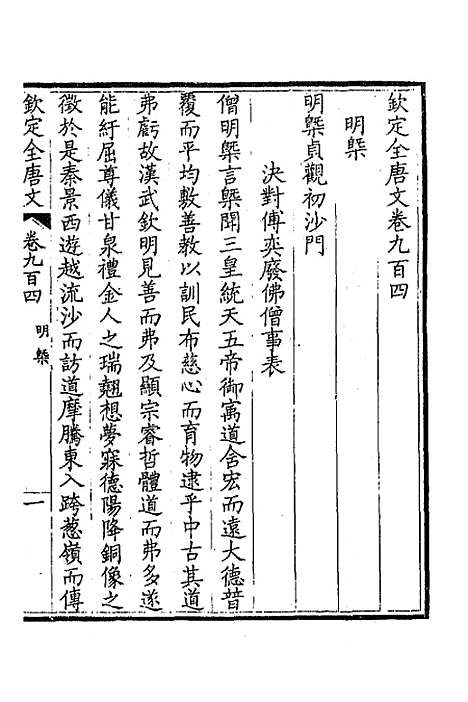 欽定全唐文卷九百四
明槩
明槩貞觀初沙門
決對傅奕廢佛僧事表
僧明槩言槩聞三皇統天五帝御寓道含宏而遠大德普
覆而平均敷善教以訓民布慈心而育物逮乎中古其道
弗虧故漢武欽明見善而弗及顯宗睿哲體道而弗多遂
能紆屈尊儀甘泉禮金人之瑞翹想夢寐德陽降銅像之
徵於是秦景西遊越流沙而訪道摩騰東入跨葱嶺而傳
欽定全唐文 卷九百四 明槩 一